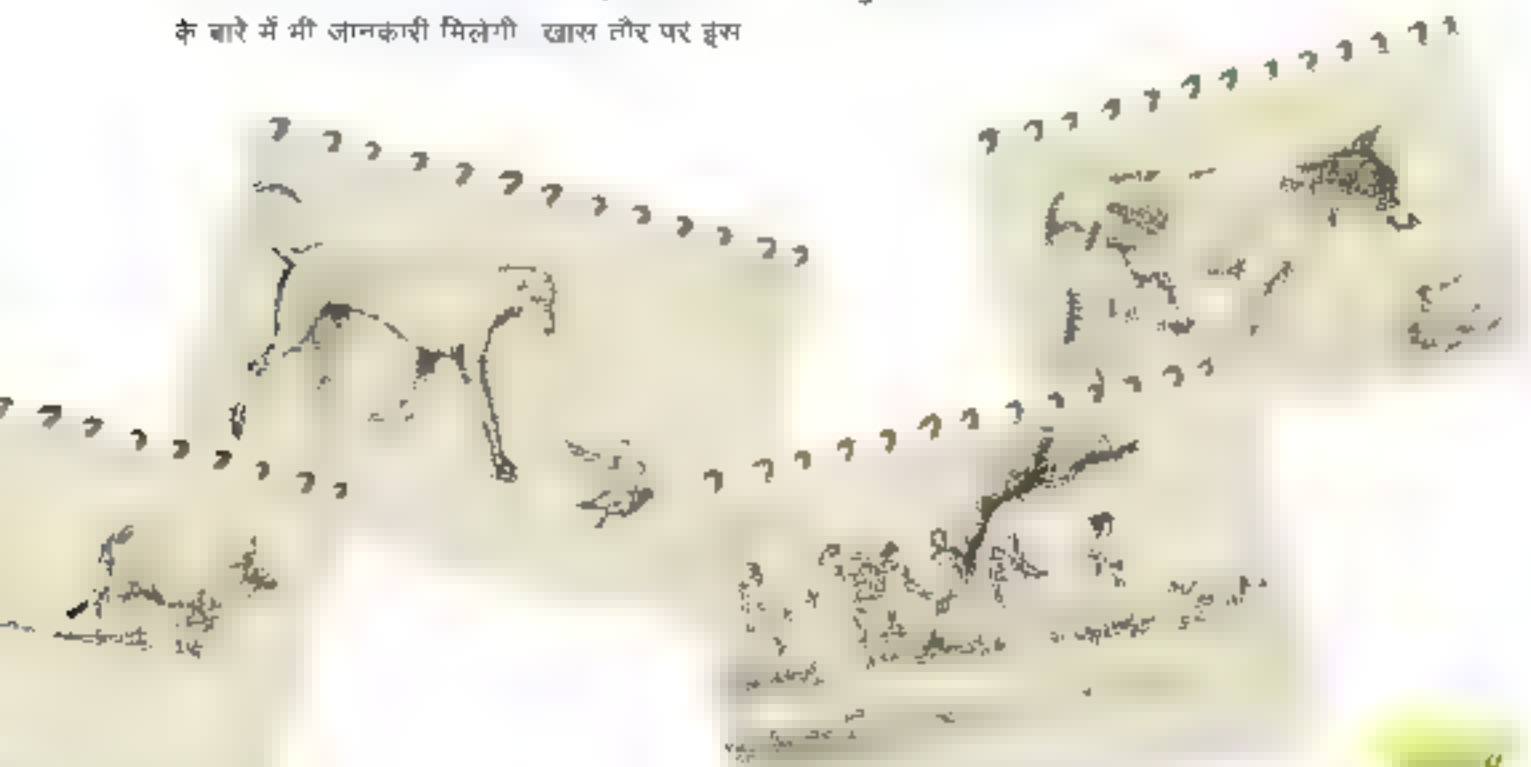 के बारे में भी जानकारी मिलेगी खास तौर पर इस